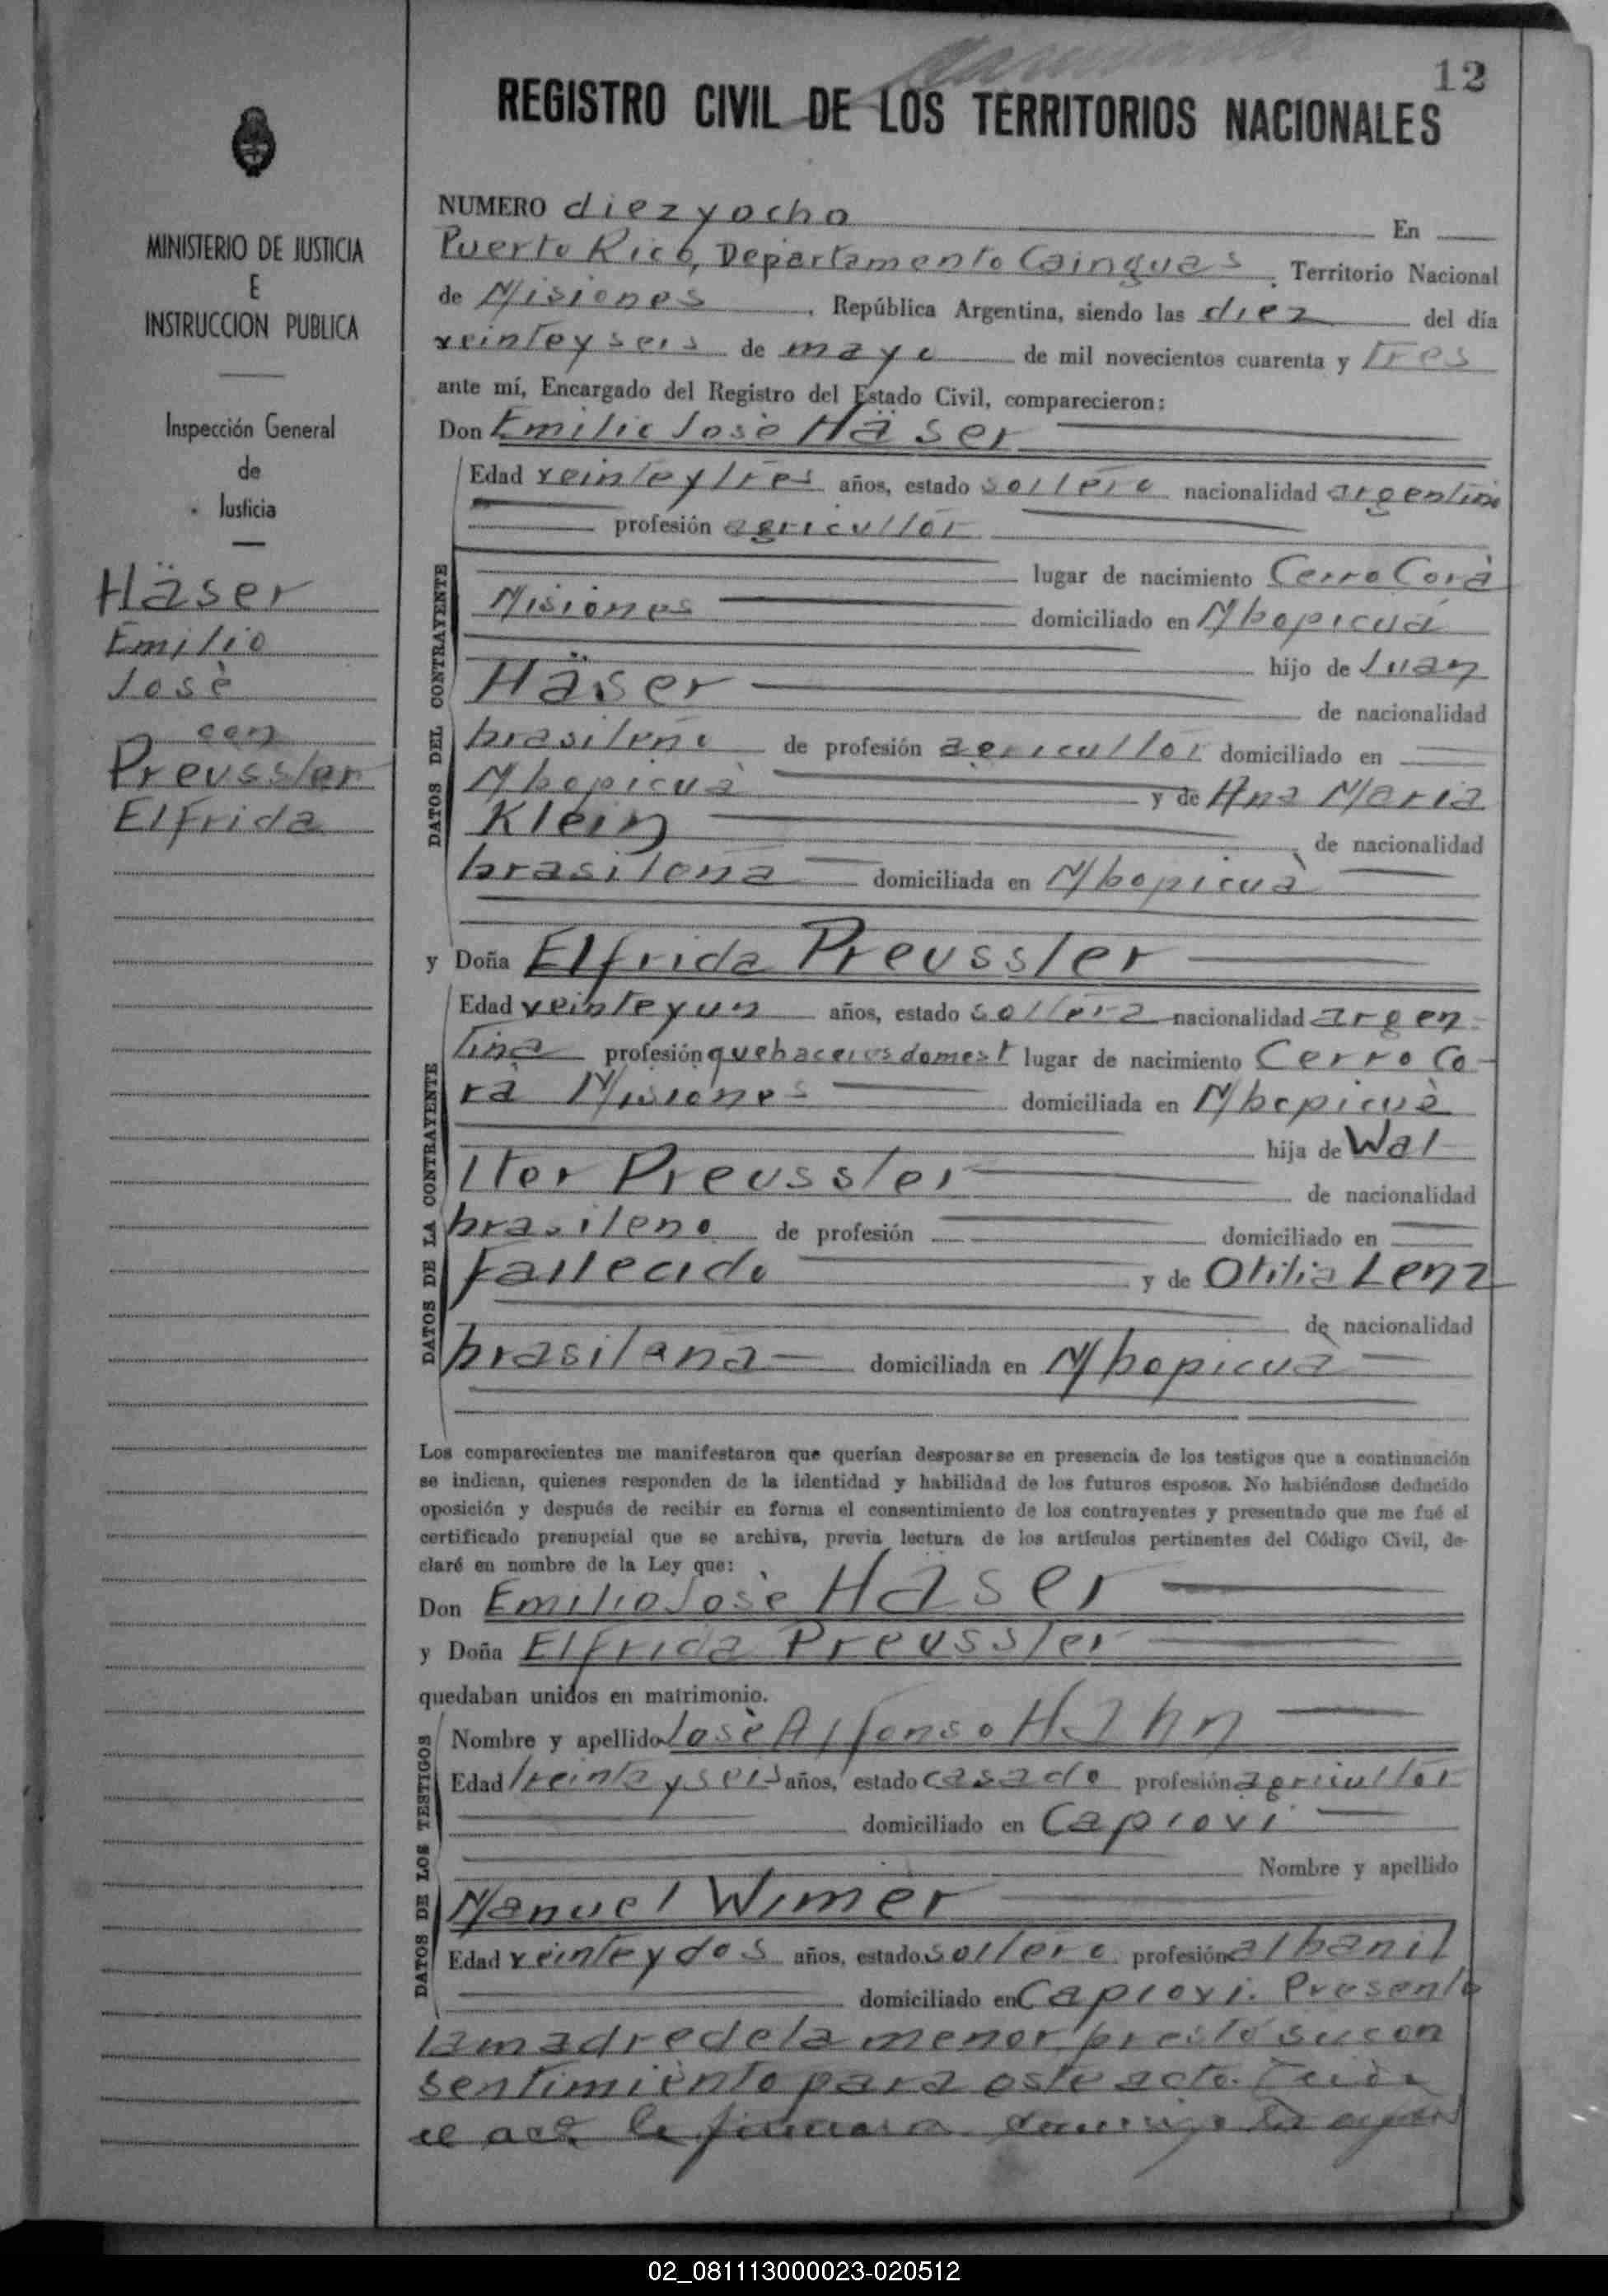 12
REGISTRO CIVIL DE LOS TERRITORIOS NACIONALES
MINISTERIO DE JUSTICIA
E
INSTRUCCION PUBLICA
Inspección General
de
Justicia
Häser
Emilio
Josè
con
Preussler
Elfrida
NUMERO diez y ocho En
Puerto Rico, Departamento Cainguas, Territorio Nacional
de Misiones, República Argentina, siendo las diez del día
veinte y seis de mayo de mil novecientos cuarenta y tres
ante mí, Encargado del Registro del Estado Civil, comparecieron:
Don Emilio Josè Häser
DATOS DEL CONTRAYENTE
Edad veinte y tres años, estado soltero nacionalidad argentino
profesión agricultor
lugar de nacimiento Cerro Corà
Misiones domiciliado en Mbopicuá
hijo de Juan
Häser de nacionalidad
brasileño de profesión agricultor domiciliado en
Mbopicuà y de Ana Maria
Klein, de nacionalidad
brasileña domiciliada en Mbopicuà
y Doña Elfrida Preussler
DATOS DE LA CONTRAYENTE
Edad veinte y un años, estado soltera nacionalidad argen-
tina profesión quehaceres domest lugar de nacimiento Cerro Co-
rà Misiones domiciliada en Mbopicuà
hija de Wal
lter Preussler de nacionalidad
brasileno de profesión domiciliado en
fallecido y de Otilia Lenz
de nacionalidad
brasilana domiciliada en Mbopicuà
Los comparecientes me manifestaron que querían desposarse en presencia de los testigos que a continuación
se indican, quienes responden de la identidad y habilidad de los futuros esposos. No habiéndose deducido
oposición y después de recibir en forma el consentimiento de los contrayentes y presentado que me fué el
certificado prenupcial que se archiva, previa lectura de los artículos pertinentes del Código Civil, de-
claré en nombre de la Ley que:
Don Emilio Josè Häser
y Doña Elfrida Preussler
quedaban unidos en matrimonio.
DATOS DE LOS TESTIGOS
Nombre y apellido Josè Alfonso Hahn
Edad treinta y seis años, estado casado profesión agricultor
domiciliado en Capiovi
Nombre y apellido
Manuel Wimer
Edad veinte y dos años, estado soltero profesión albanil
domiciliado en Capiovi. Presente
la madre de la menor prestó su con
sentimiento para este acto. Leida
el acta la firmaron conmigo los
02_081113000023-020512